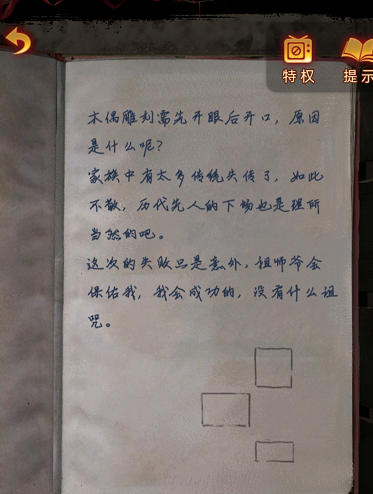 特权
提示
木偶雕刻需先开眼后开口，原因
是什么呢？
家族中有太多传统失传了，如此
不敬，历代先人的下场也是理所
当然的吧。
这次的失败只是意外，祖师爷会
保佑我，我会成功的，没有什么诅
咒。